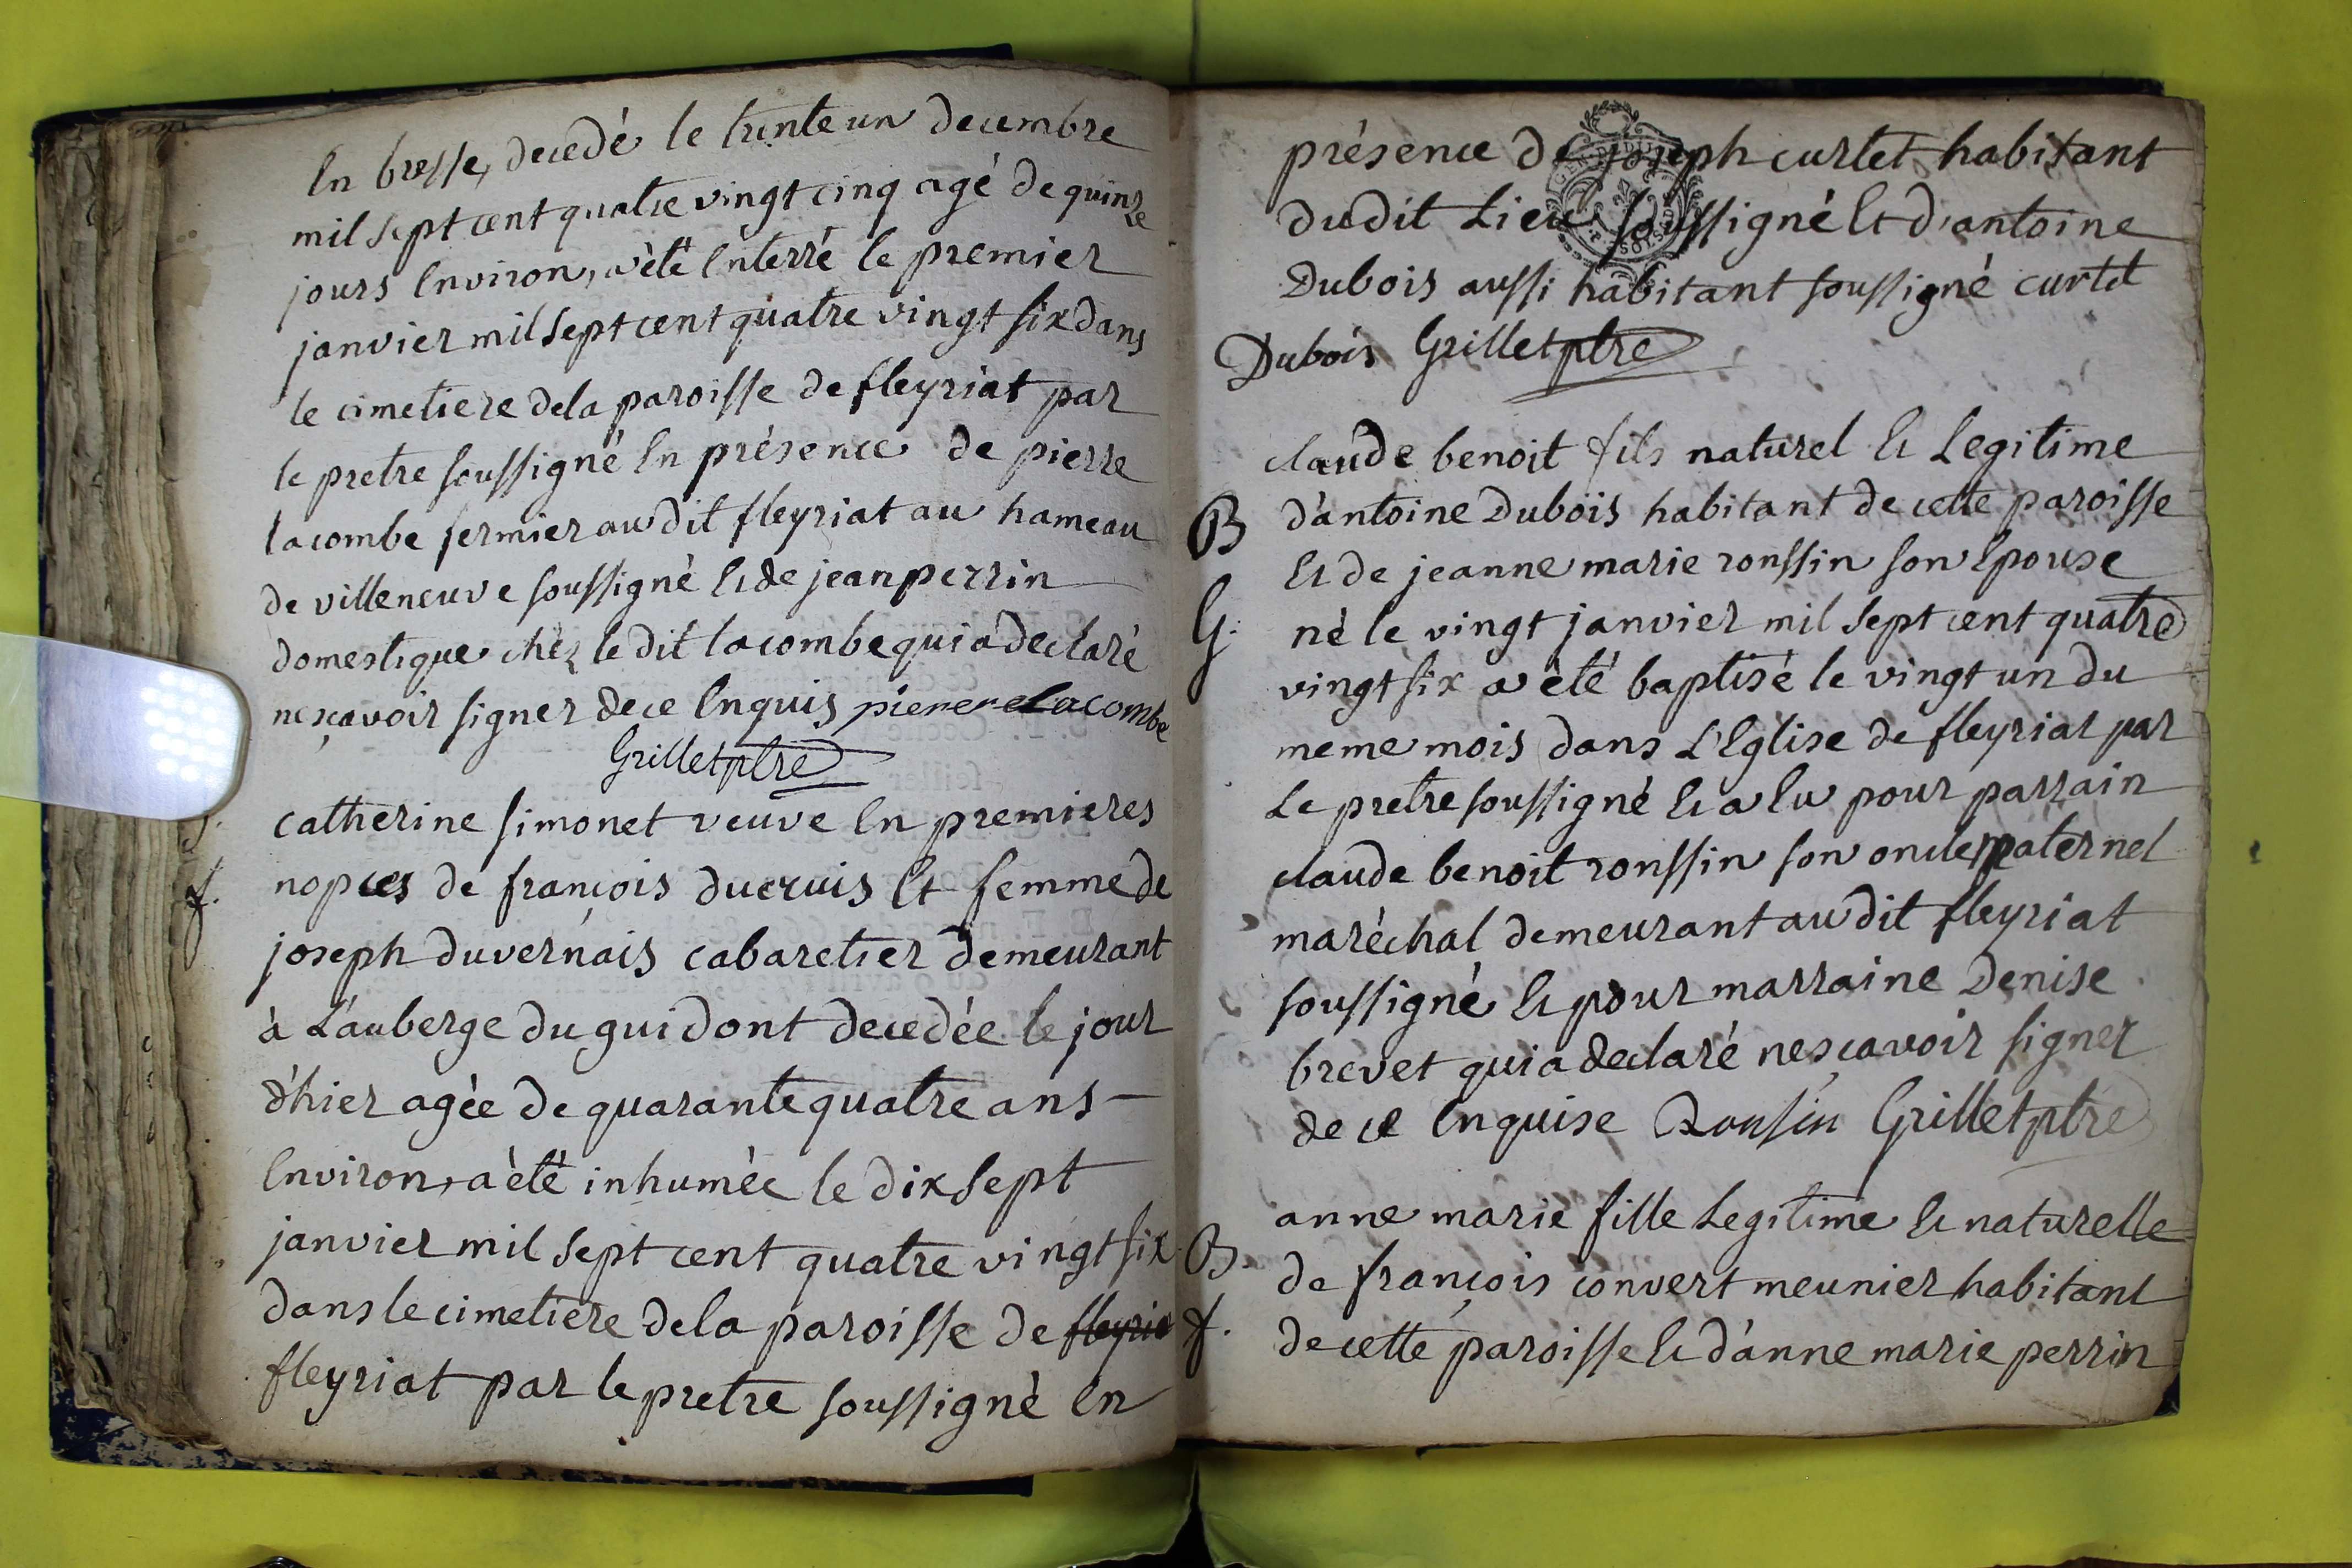 en bresse, decedé le trente un decembre
mil sept cent quatre vingt cinq agé de quinze
jours environ, a èté enterré le premier
janvier mil sept cent quatre vingt six dans
le cimetiere de la paroisse de fleyriat par
le pretre soussigné en présence de pierre
lacombe fermier audit fleyriat au hameau
de villeneuve soussigné et de jean perrin
domestique chéz le dit lacombe qui a declaré
ne sçavoir signer de ce enquis pierre lacombe
Grillet ptre
catherine simonet veuve en premieres
f. nopces de françois ducruis et femme de
joseph duvernais cabaretier demeurant
à L'auberge du guidont decedée le jour
d'hier agée de quarante quatre ans
environ, a èté inhumée le dix sept
janvier mil sept cent quatre vingt six
dans le cimetiere de la paroisse de fleyria
fleyriat par le pretre soussigné en
présence de joseph curtet habitant
dudit Lieu soussigné et d'antoine
Dubois aussi habitant soussigné curtet
Dubois Grillet ptre
claude benoit fils naturel et Legitime
B d'antoine Dubois habitant de cette paroisse
et de jeanne marie ronssin son epouse
G. né le vingt janvier mil sept cent quatre
vingt six a èté baptisé le vingt un du
meme mois dans L'Eglise de fleyriat par
Le pretre soussigné et a eu pour parrain
claude benoit ronssin son oncle paternel
maréchal demeurant audit fleyriat
soussigné et pour marraine Denise
brevet qui a declaré ne sçavoir signer
de ce enquise Ronsin Grillet ptre
anne marie fille Legitime et naturelle
B. de françois convert meunier habitant
f. de cette paroisse et d'anne marie perrin